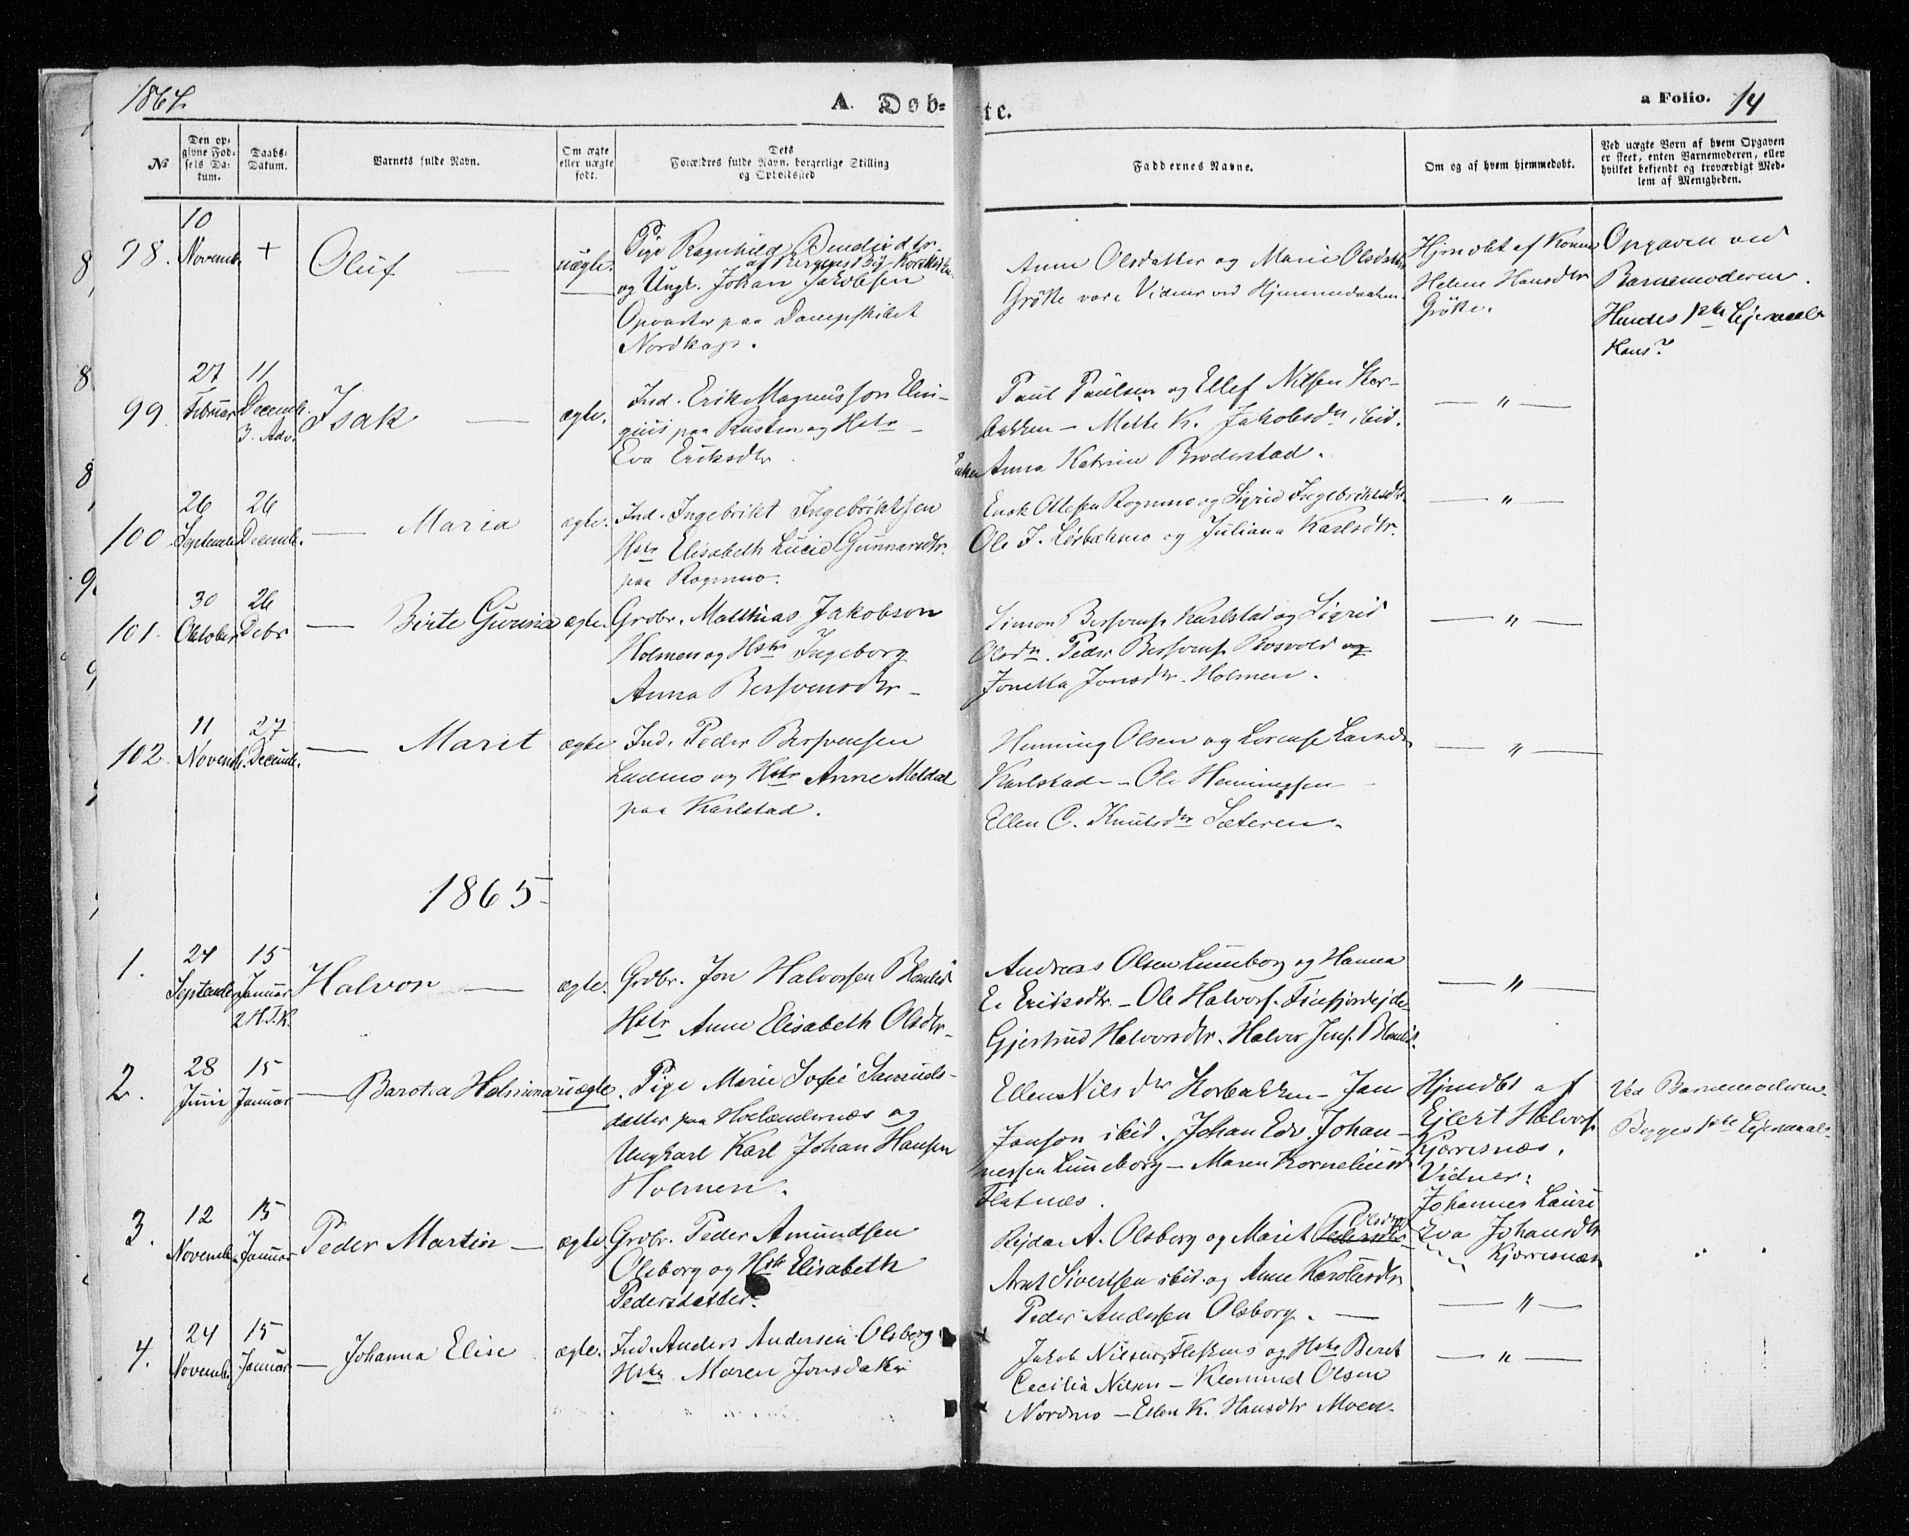 1864.
A. Døb-
te.
a Folio. 14
No
Den op-
givne Fød-
sels Da-
tum.
Daabs-
Datum.
Barnets fulde Navn.
Om ægte
eller uægte
født.
Dets
Forældres fulde Navn, borgerlige Stilling
og Opholdssted
Faddernes Navne.
Om og af hvem hjemmedøbt.
Ved uægte Børn af hvem Opgaven
er skeet, enten Barnemoderen, eller
hvilket bekjendt og troværdigt Med-
lem af Menigheden.
98.
10
Novemb.
+
Oluf
uægte.
Pige Ragnhild Bendixdtr.
af Bergens By
og Ungk. Johan Jakobsen
Opvarter paa Dampskibet
Nordkap.
Anne Olsdatter og Marie Olsdatter
Grøtte vare Vidner ved Hjemmedaaben.
Hjmdbt af Konen
Helene Hansdtr
Grøtte.
Opgaven ved
Barnemoderen.
Hendes 1ste Lejermaal
Hans?
99.
27
Februar
11
Decemb.
3. Adv.
Isak
ægte.
Ind. Erik Magnusson Elin-
guis paa Rusten og Hstr
Eva Eriksdtr.
Paul Paulsen og Ellef Nilsen Kor-
bakken - Mette K. Jakobsdtr ibid.
Anna Katrine Broderstad.
- " -
100
26
September
26
Decemb.
- Maria
ægte.
Ind. Ingebrikt Ingebriktsen
Hstr Elisabeth Lucie Gunnarsdtr.
paa Rognmo.
Enok Ottesen Rognmo og Sigrid Ingebriktsdtr
Ole J. og Juliana Karlsdtr.
- " -
101.
30
Oktober
26
Debr
- Birte Gurina
ægte.
Grdbr. Matthias Jakobson
Holmen og Hstr Ingeborg
Anna Bersvensdtr -
Simon Bersvens. Karlstad og Sigrid
Olsdtr. Peder Bersvens. Rosvold og
Jonetta Jonsdtr. Holmen.
- " -
102.
11
Novemb.
27
Decemb.
- Marit
ægte
Ind. Peder Bersvensen
og Hstr Anne Meldal
paa Karlstad.
Henning Olsen og Lorense Larsdr
Karlstad - Ole Henningsen -
Ellen C. Knutsdtr Sæteren.
- " -
1865
1.
24
September
15
Januar
2 H.T.K.
Halvor -
ægte.
Grdbr. Jon Halvorsen Blomlid
Hstr Anne Elisabeth Olsdtr -
Andreas Olsen Luneborg og Hanna
E. Eriksdtr. - Ole Halvors. Finfjordejde
Gjertrud Halvorsdtr. Halvor Jons. Blomlid.
- " -
2.
28
Juni
15
Januar
- Barotea Halmina
uægte.
Pige Marie Sofie Samuels-
datter paa Hollendernæs og
Ungkarl Karl Johan Hansen
Holmen.
Ellen Nilsdtr Korbakken - Jan
Janson ibid. Johan Edv. Johan-
nessen Luneborg - Maren Korneliusdtr
Flatnæs.
Hjmdbt af
Ejlert Halvors.
Kjærresnæs.
Vidner:
Johannes Lauri
Eva Johansdtr
Kjærresnæs
Ved Barnemoderen
Begges 1ste Lejermaal
3.
12
Novemb.
15
Januar
Peder Martin -
ægte
Grdbr. Peder Amundsen
Olsborg og Hstr Elisabeth
Pedersdatter.
Rejdar A. Olsborg og Marit Pedersdtr Olsdtr
Arnt Sivertsen ibid. og Anne Karolusdtr
Peder Andersen Olsborg. -
- " -
" "
4.
24
Novemb.
15
Januar
- Johanna Elise
ægte.
Ind. Anders Andersen Olsborg
Hstr. Maren Jonsdatter
Jakob Nilsen Flexmo og Hstr Beret
Cecilia Nilsen - Klemmet Olsen
Nordmo - Ellen K. Hansdtr Moen.
- " -